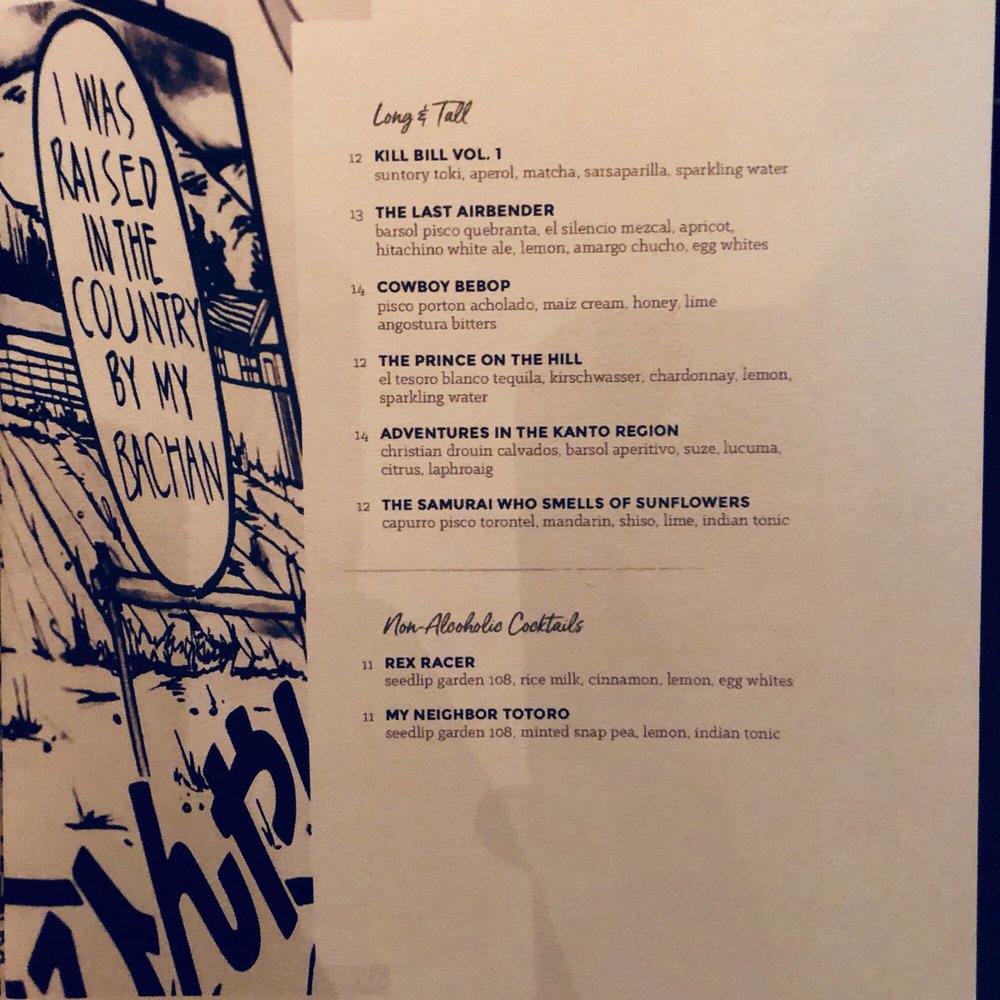 I WAS
RAISED
IN THE
COUNTRY
BY MY
BACHAN
Long & Tall
12 KILL BILL VOL. 1
suntory toki, aperol, matcha, sarsaparilla, sparkling water
13 THE LAST AIRBENDER
barsol pisco quebranta, el silencio mezcal, apricot,
hitachino white ale, lemon, amargo chucho, egg whites
14 COWBOY BEBOP
pisco porton acholado, maiz cream, honey, lime
angostura bitters
12 THE PRINCE ON THE HILL
el tesoro blanco tequila, kirschwasser, chardonnay, lemon,
sparkling water
14 ADVENTURES IN THE KANTO REGION
christian drouin calvados, barsol aperitivo, suze, lucuma,
citrus, laphroaig
12 THE SAMURAI WHO SMELLS OF SUNFLOWERS
capurro pisco torontel, mandarin, shiso, lime, indian tonic
Non-Alcoholic Cocktails
11 REX RACER
seedlip garden 108, rice milk, cinnamon, lemon, egg whites
11 MY NEIGHBOR TOTORO
seedlip garden 108, minted snap pea, lemon, indian tonic